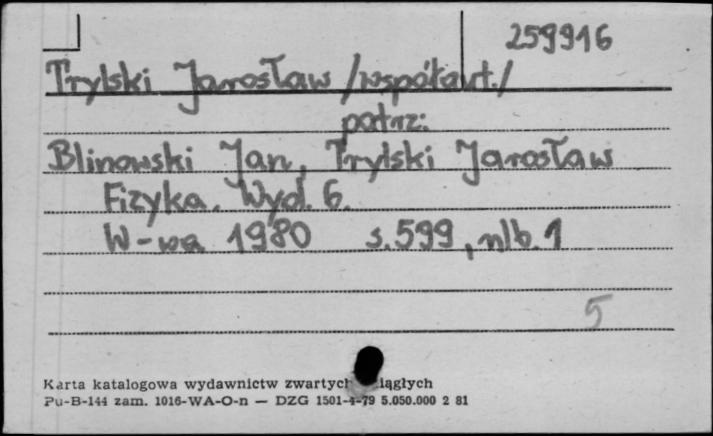 259916
Trylski Jarosław /współaut./
patrz:
Blinowski Jan, Trylski Jarosław
Fizyka. Wyd. 6.
W-wa 1980 s.599, nlb. 1
5
Karta katalogowa wydawnictw zwartych ciągłych
Pu-B-144 zam. 1016-WA-O-n — DZG 1501-4-79 5.050.000 2 81